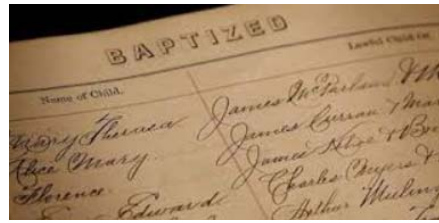 BAPTIZED
Name of Child.
Lawful Child of
Mary Theresa
James McParland &
Alice Mary
James Curran & Mar
Florence
James
Edward
Charles Meyers &
Arthur